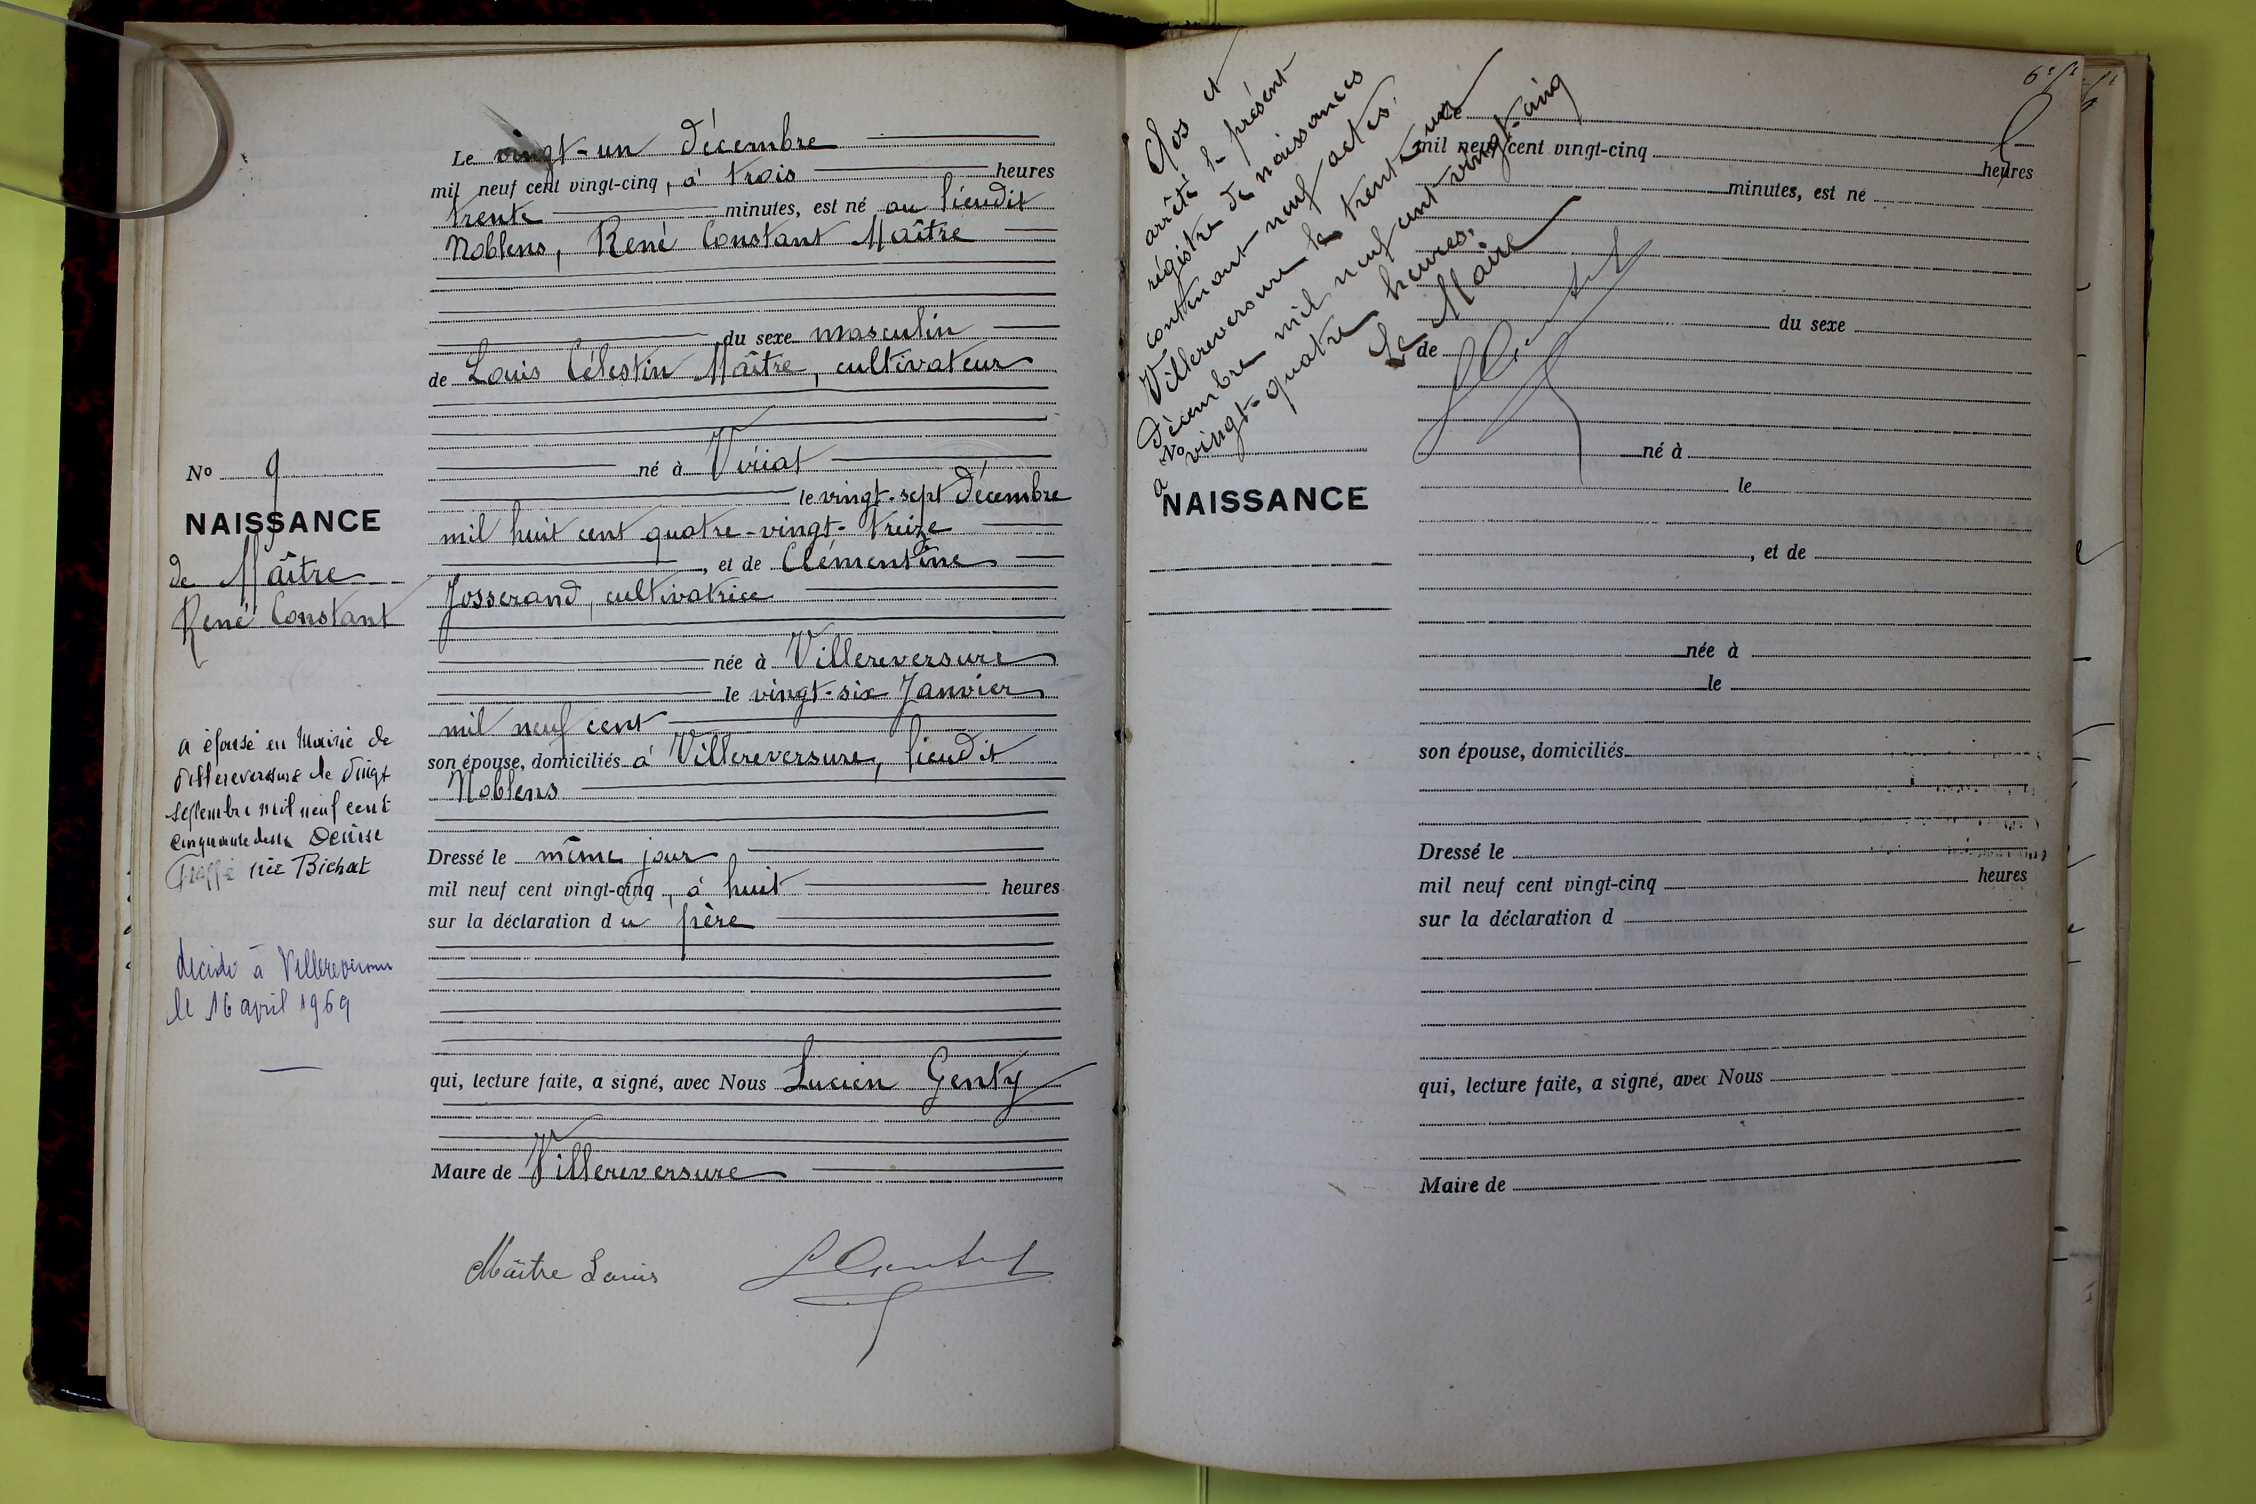 Le vingt-un Décembre
mil neuf cent vingt-cinq, à trois heures
trente minutes, est né au lieudit
Noblens, René Constant Maître
du sexe masculin
de Louis Célestin Maître, cultivateur
né à Viriat
le vingt-sept Décembre
mil huit cent quatre-vingt-treize
, et de Clémentine
Josserand, cultivatrice
née à Villereversure
le vingt-six Janvier
mil neuf cent
son épouse, domiciliés à Villereversure, lieudit
Noblens
Dressé le même jour
mil neuf cent vingt-cinq, à huit heures
sur la déclaration du père
qui, lecture faite, a signé, avec Nous Lucien Genty
Maire de Villereversure
Maître Louis
No 9
NAISSANCE
de Maître
René Constant
a épousé en Mairie de
Villereversure le vingt
septembre mil neuf cent
cinquante Denise
née Bichat
décédé à Villereversure
le 16 avril 1969
Clos et
arrêté le présent
régistre de naissances
contenant neuf actes.
Villereversure le trente-un
Décembre mil neuf cent vingt-cinq
à vingt-quatre heures.
Le Maire
No
NAISSANCE
Le
mil neuf cent vingt-cinq heures
minutes, est né
du sexe
de
né à
le
, et de
née à
le
son épouse, domiciliés
Dressé le
mil neuf cent vingt-cinq heures
sur la déclaration d
qui, lecture faite, a signé, avec Nous
Maire de